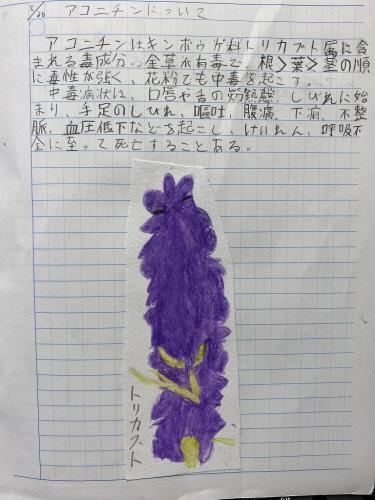 5/26 アコニチンについて
アコニチンはキンポウゲ科トリカブト属に含
まれる毒成分。全草が有毒で、根>葉>茎の順
に毒性が強く、花粉でも中毒を起こす。
中毒症状は、口唇や舌の灼熱感、しびれに始
まり、手足のしびれ、嘔吐、腹痛、下痢、不整
脈、血圧低下などを起こし、けいれん、呼吸不
全に至って死亡することもある。
トリカブト